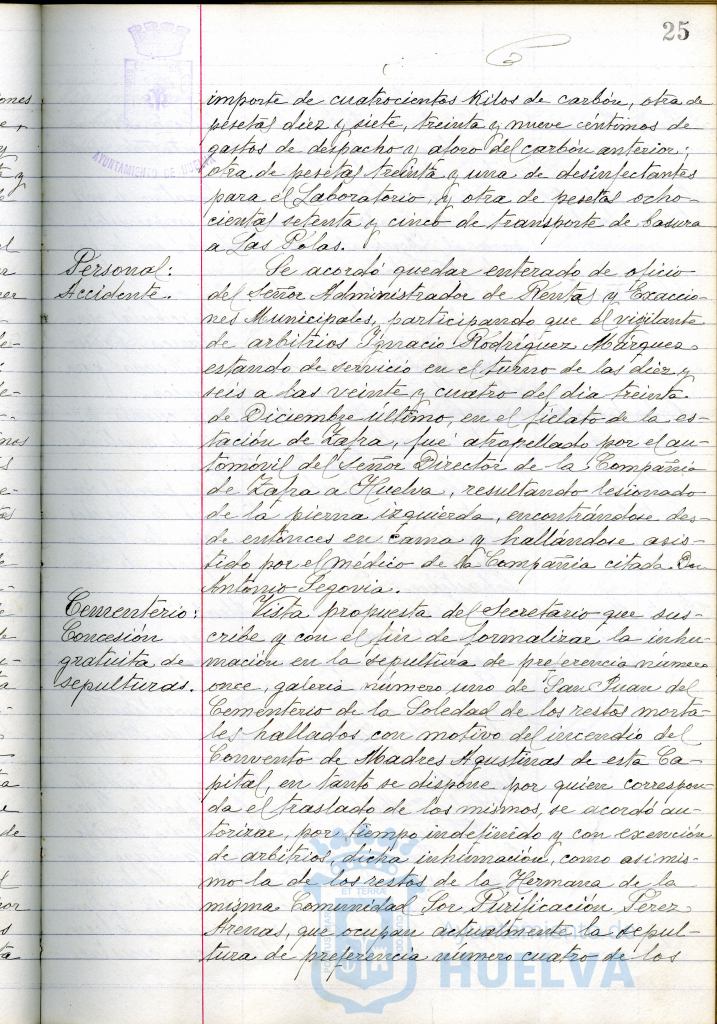 25
importe de cuatrocientos Kilos de carbón, otra de
pesetas diez y siete, treinta y nueve céntimos de
gastos de despacho y aforo del carbón anterior;
otra de pesetas treinta y una de desinfectantes
para el Laboratorio, y otra de pesetas ocho-
cientas setenta y cinco de transporte de basura
a Las Polas.
Personal:
Accidente.
Se acordó quedar enterado de oficio
del Señor Administrador de Rentas y Exaccio-
nes Municipales, participando que el vigilante
de arbitrios Ignacio Rodríguez Márquez
estando de servicio en el turno de las diez y
seis a las veinte y cuatro del dia treinta
de Diciembre último, en el fielato de la es-
tación de Zafra, fué atropellado por el au-
tomóvil del Señor Director de la Compañia
de Zafra a Huelva, resultando lesionado
de la pierna izquierda, encontrándose des-
de entonces en cama y hallándose asis-
tido por el médico de la Compañia citada Don
Antonio Segovia.
Cementerio:
Concesión
gratuita de
sepulturas.
Vista propuesta del Secretario que sus-
cribe y con el fin de formalizar la inhu-
mación en la sepultura de preferencia número
once, galeria número uno de San Juan del
Cementerio de la Soledad de los restos morta-
les hallados con motivo del incendio del
Convento de Madres Agustinas de esta Ca-
pital, en tanto se dispone por quien correspon-
da el traslado de los mismos, se acordó au-
torizar, por tiempo indefinido y con exención
de arbitrios, dicha inhumación, como asimis-
mo la de los restos de la Hermana de la
misma Comunidad Sor Purificación Pérez
Arenas, que ocupan actualmente la sepul-
tura de preferencia número cuatro de los
AYUNTAMIENTO DE HUELVA
Ayuntamiento de
HUELVA